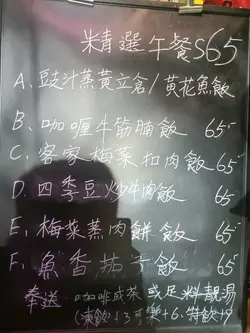 精選午餐$65
A、豉汁蒸黃立倉/黃花魚飯
B、咖喱牛筋腩飯 65-
C、客家梅菜扣肉飯 65-
D、四季豆炒牛肉飯 65-
E、梅菜蒸肉餅飯 65-
F、魚香茄子飯 65-
奉送 咖啡或茶 或足料靚湯
(凍飲+3 可樂+6 特飲+9